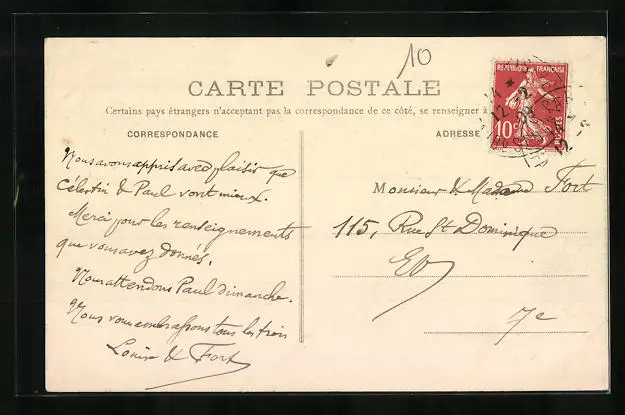 10
CARTE POSTALE
Certains pays étrangers n'acceptant pas la correspondance de ce côté, se renseigner à
CORRESPONDANCE
ADRESSE
REPUBLIQUE FRANÇAISE
10c
POSTES
Nous avons appris avec plaisir que
Célestin & Paul vont mieux.
Merci pour les renseignements
que vous avez donnés.
Nous attendons Paul dimanche.
Nous vous embrassons tous les trois
Louise & Fort
Monsieur & Madame Fort
115, Rue St Dominique
EV
7e